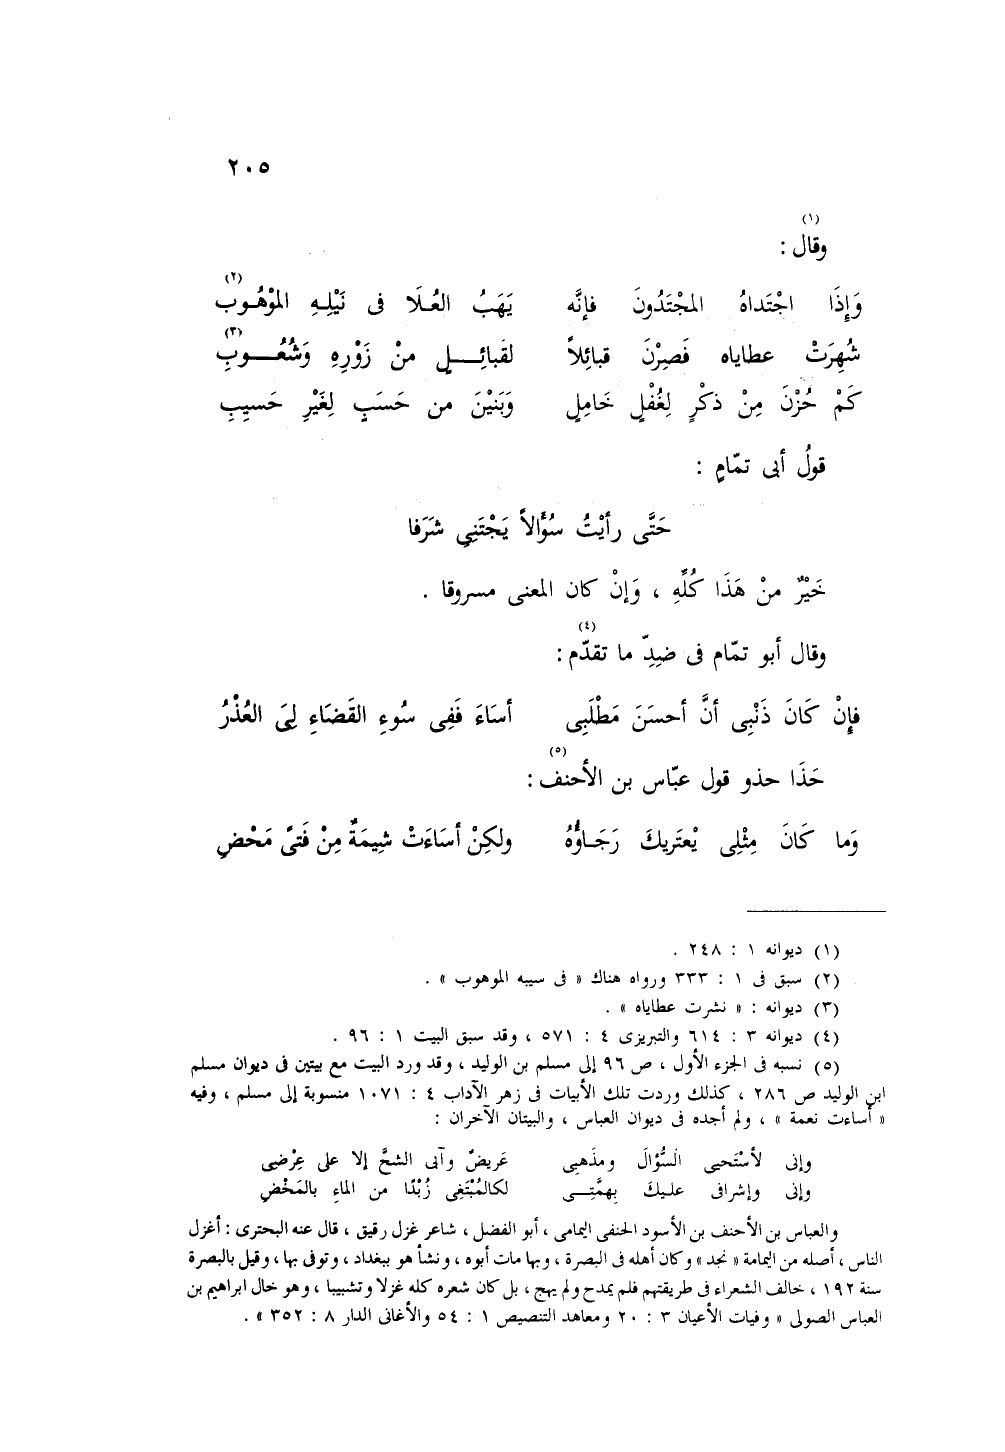 ٢٠٥
(١)
وقال :
وَإِذَا اجْتَداهُ المجْتَدُونَ فإنَّه يَهَبُ العُلَا فى نَيْلِهِ المَوْهُوبِ (٢)
شُهِرَتْ عطاياه فَصِرْنَ قبائِلاً لقَبائِلٍ منْ زَوْرِهِ وَشُعُوبِ (٣)
كَمْ حُزْنَ مِنْ ذكْرٍ لِغُفْلٍ خَامِلٍ وَبَنْيْنَ من حَسَبٍ لِغَيْرِ حَسيبِ
قولُ أبى تمّامٍ :
حَتَّى رأيْتُ سُؤَالاً يَجْتَنِى شَرَفا
خَيْرٌ منْ هَذَا كُلِّهِ ، وَإنْ كان المعنى مسروقا .
وقال أبو تمّام فى ضِدِّ ما تقدّم (٤) :
فإِنْ كَانَ ذَنْبِى أنَّ أحسَنَ مَطْلَبِى أسَاءَ فَفِى سُوءِ القَضَاءِ لِىَ العُذْرُ
حَذَا حذو قول عبّاس بن الأحنف (٥) :
وَما كَانَ مِثْلِى يْعتَرِيكَ رَجَاؤُهُ ولكِنْ أسَاءَتْ شِيمَةٌ مِنْ فَتىً مَحْضِ
(١) ديوانه ١ : ٢٤٨ .
(٢) سبق فى ١ : ٣٣٣ ورواه هناك « فى سيبه الموهوب » .
(٣) ديوانه : « نشرت عطاياه » .
(٤) ديوانه ٣ : ٦١٤ والتبريزى ٤ : ٥٧١ ، وقد سبق البيت ١ : ٩٦ .
(٥) نسبه فى الجزء الأول ، ص ٩٦ إلى مسلم بن الوليد ، وقد ورد البيت مع بيتين فى ديوان مسلم
ابن الوليد ص ٢٨٦ ، كذلك وردت تلك الأبيات فى زهر الآداب ٤ : ١٠٧١ منسوبة إلى مسلم ، وفيه
« أساءت نعمة » ، ولم أجده فى ديوان العباس ، والبيتان الآخران :
وإنى لأسْتَحيى السُّؤالَ ومذهبِى عَريضٌ وآبى الشحَّ إلا على عِرْضى
وإنى وإشرافى عليكَ بِهمَّتِى لكالمُبْتَغِى زُبْدًا من الماءِ بالمَخْضِ
والعباس بن الأحنف بن الأسود الحنفى اليمامى ، أبو الفضل ، شاعر غزل رقيق ، قال عنه البحترى : أغزل
الناس ، أصله من اليمامة « نجد » وكان أهله فى البصرة ، وبها مات أبوه ، ونشأ هو ببغداد ، وتوفى بها ، وقيل بالبصرة
سنة ١٩٢ ، خالف الشعراء فى طريقتهم فلم يمدح ولم يهج ، بل كان شعره كله غزلا وتشبيبا ، وهو خال ابراهيم بن
العباس الصولى « وفيات الأعيان ٣ : ٢٠ ومعاهد التنصيص ١ : ٥٤ والأغانى الدار ٨ : ٣٥٢ » .